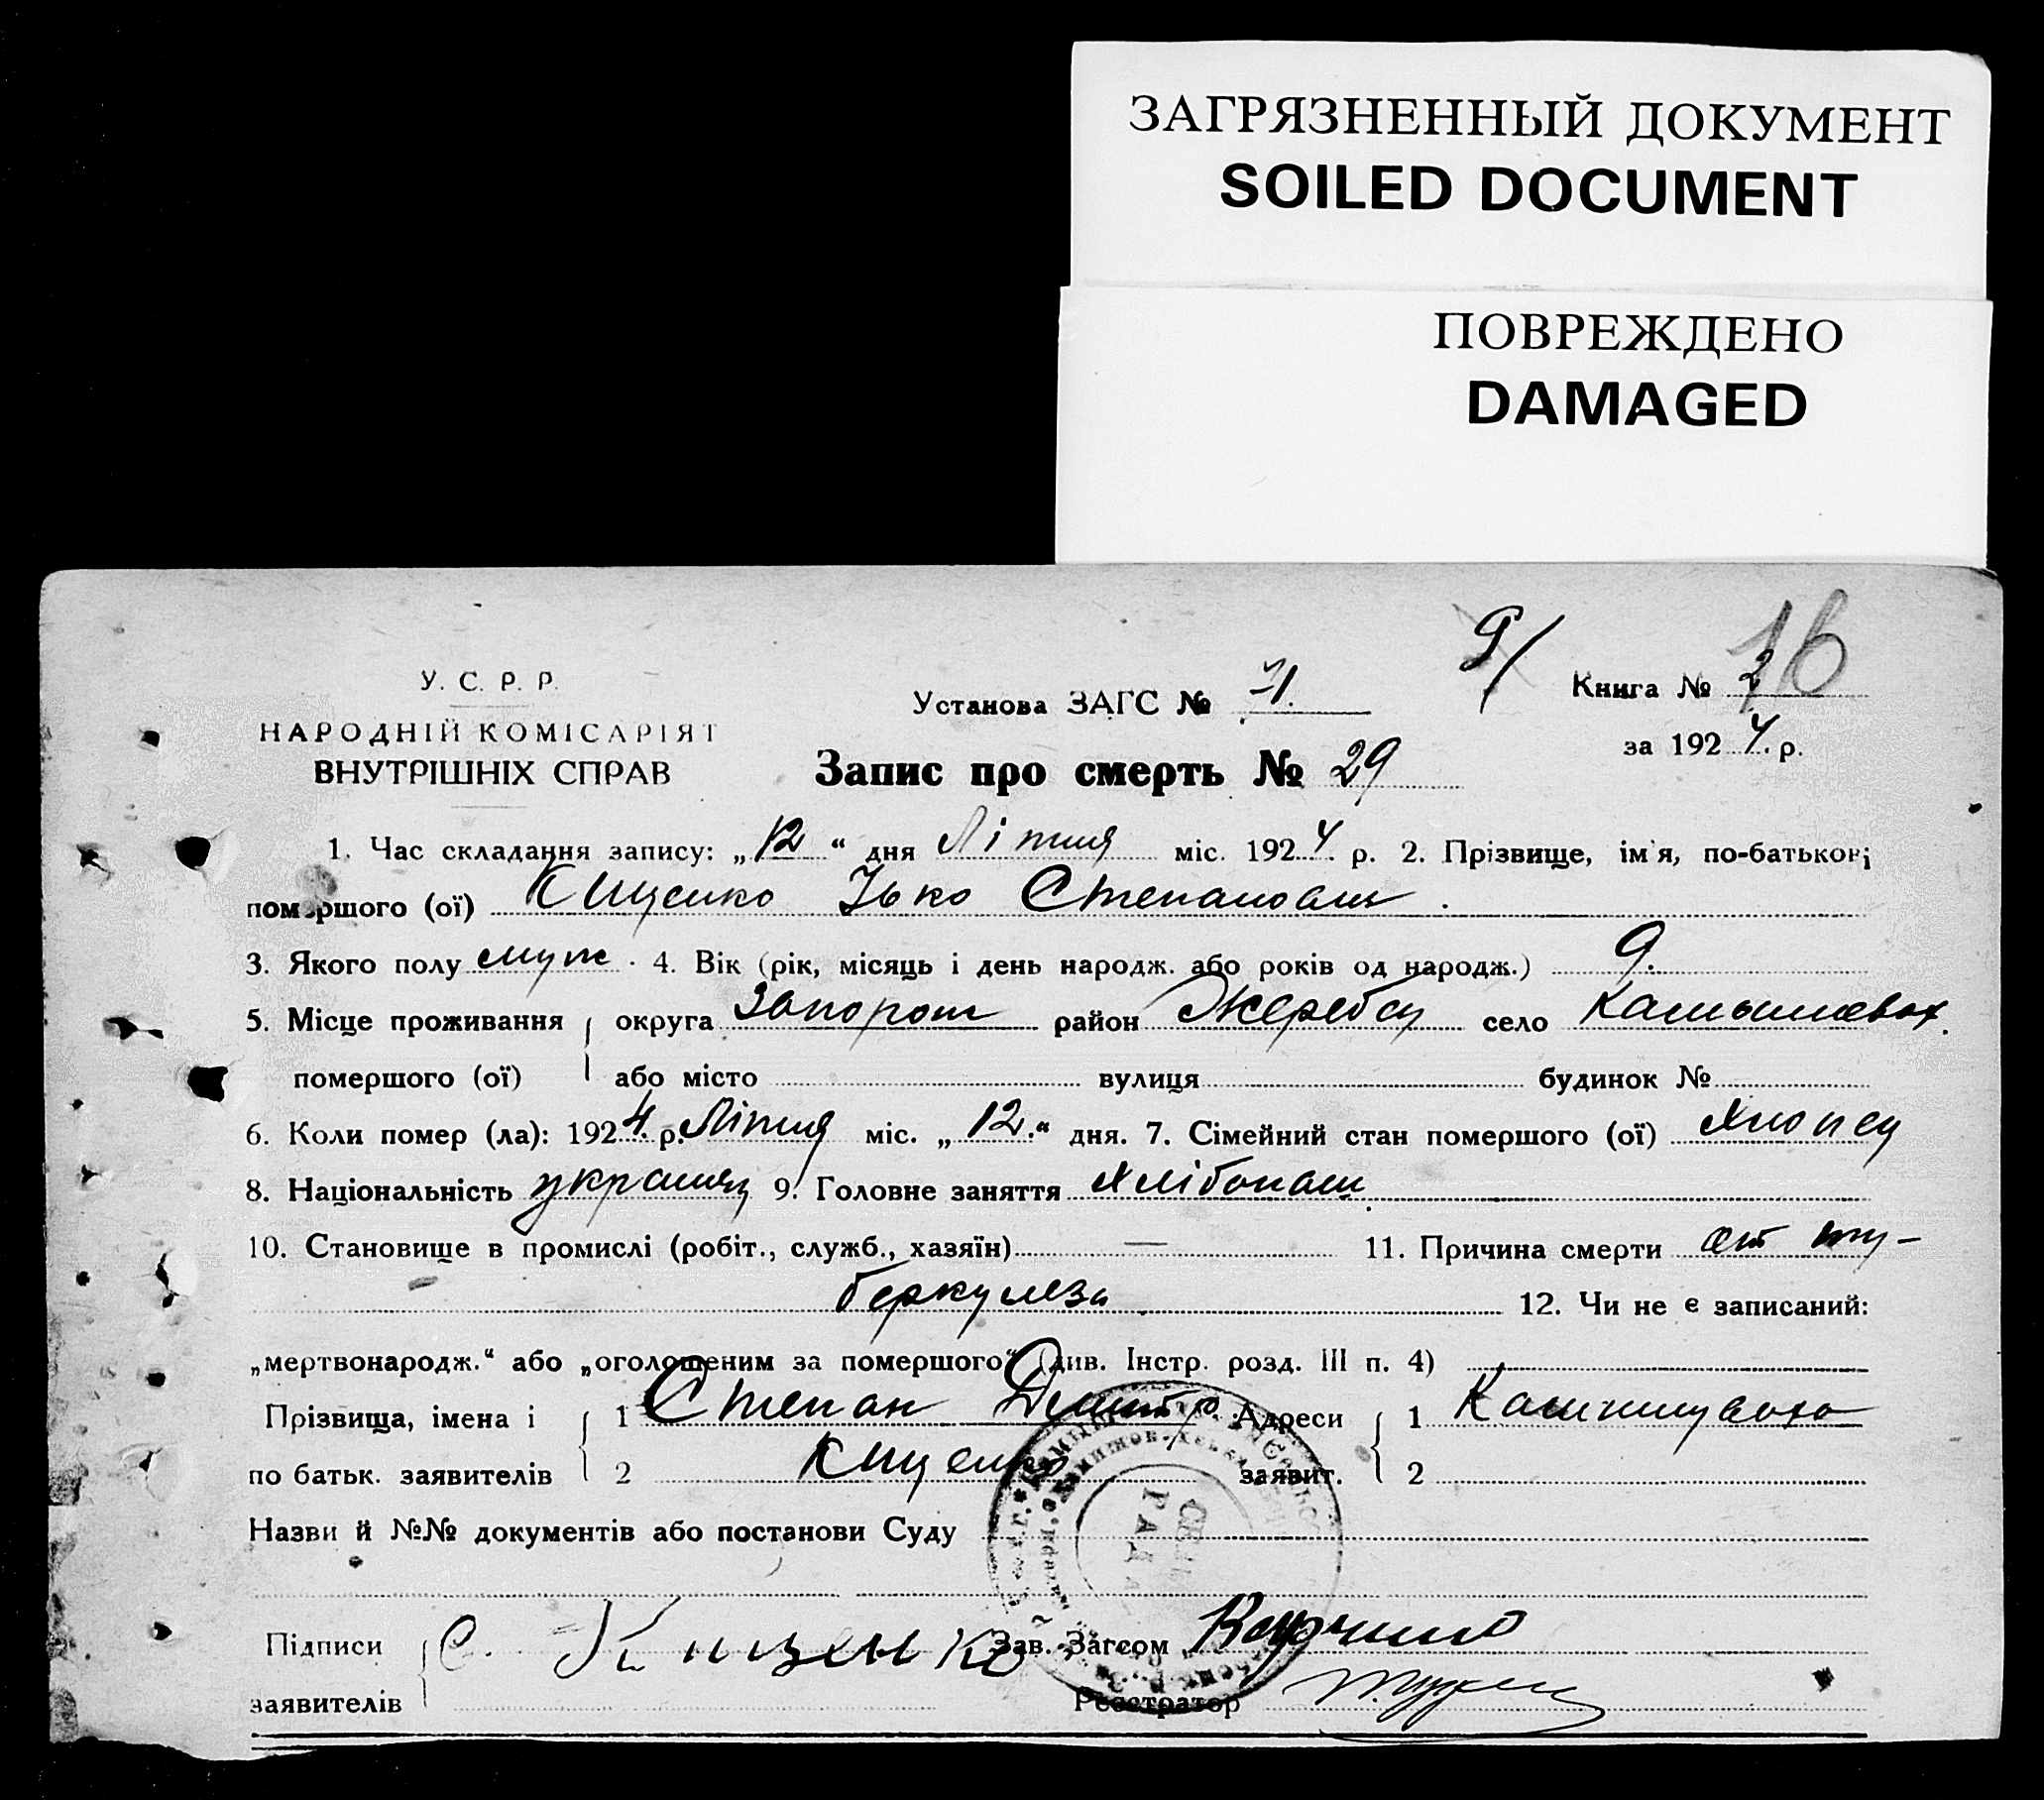 ЗАГРЯЗНЕННЫЙ ДОКУМЕНТ
SOILED DOCUMENT
ПОВРЕЖДЕНО
DAMAGED
16
9/
У. С. Р. Р.
НАРОДНІЙ КОМІСАРІЯТ
ВНУТРІШНІХ СПРАВ
Установа ЗАГС №
Книга № 2
за 1924. р.
Запис про смерть № 29
1. Час складання запису: „12“ дня Ліпня міс. 1924. р. 2. Прізвище, ім'я, по-батькові
помершого (ої) Кищенко Ілько Степанович.
3. Якого полу муж. 4. Вік (рік, місяць і день народж. або років од народж.) 9.
5. Місце проживання округа Запорож район Жеребец село Камышевах.
помершого (ої) або місто вулиця будинок №
6. Коли помер (ла): 1924. р. Ліпня міс. „12.“ дня. 7. Сімейний стан помершого (ої) Хлопец
8. Національність украинец 9. Головне заняття Хлібопаш.
10. Становище в промислі (робіт., служб., хазяїн) — 11. Причина смерти от ту-
беркулеза 12. Чи не є записаний:
„мертвонародж.“ або „оголошеним за помершого“ (див. Інстр. розд. III п. 4)
Прізвища, імена і 1 Степан Дмитр Адреси 1
по батьк. заявителів 2 Кищенко заявит. 2
Назви й №№ документів або постанови Суду
СІЛЬ
РАДА
Підписи С. Кищенко Зав. Загсом
заявителів Реєстратор